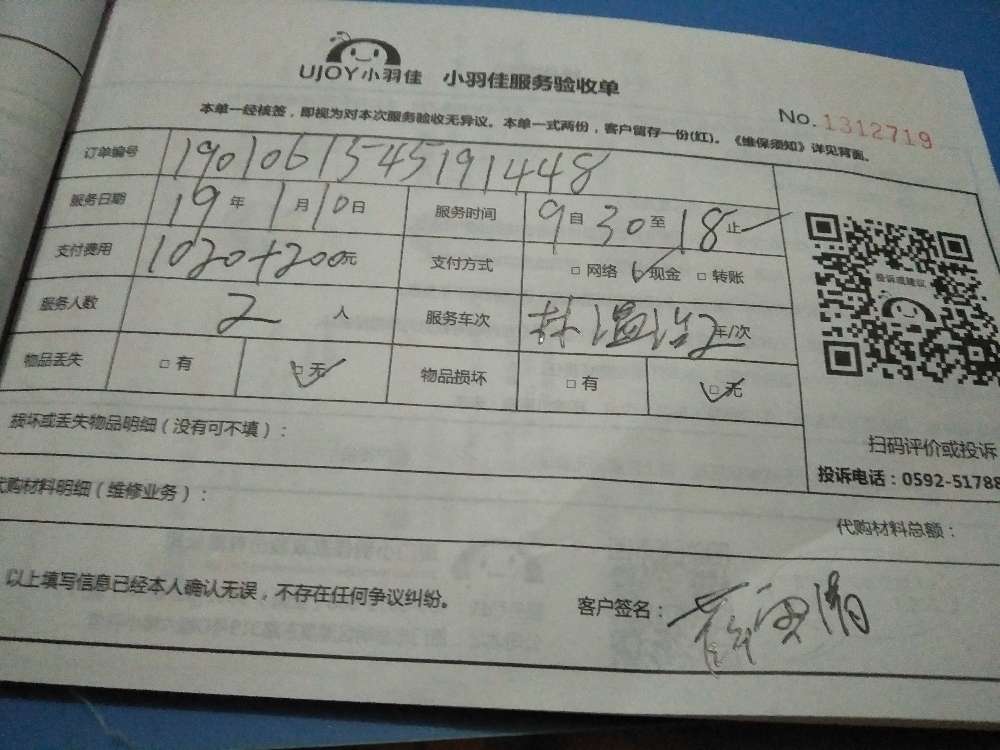 UJOY小羽佳 小羽佳服务验收单
No. 1312719
本单一经核签，即视为对本次服务验收无异议。本单一式两份，客户留存一份(红)。《维保须知》详见背面。
订单编号 1901061545191448
服务日期 19年1月10日 服务时间 9自30至18止
支付费用 1020+200元 支付方式 □网络 □现金 □转账
服务人数 2人 服务车次 2车/次
物品丢失 □有 □无 物品损坏 □有 □无
投诉或建议
损坏或丢失物品明细（没有可不填）：
扫码评价或投诉
投诉电话：0592-51788
代购材料明细（维修业务）：
代购材料总额：
以上填写信息已经本人确认无误，不存在任何争议纠纷。
客户签名：